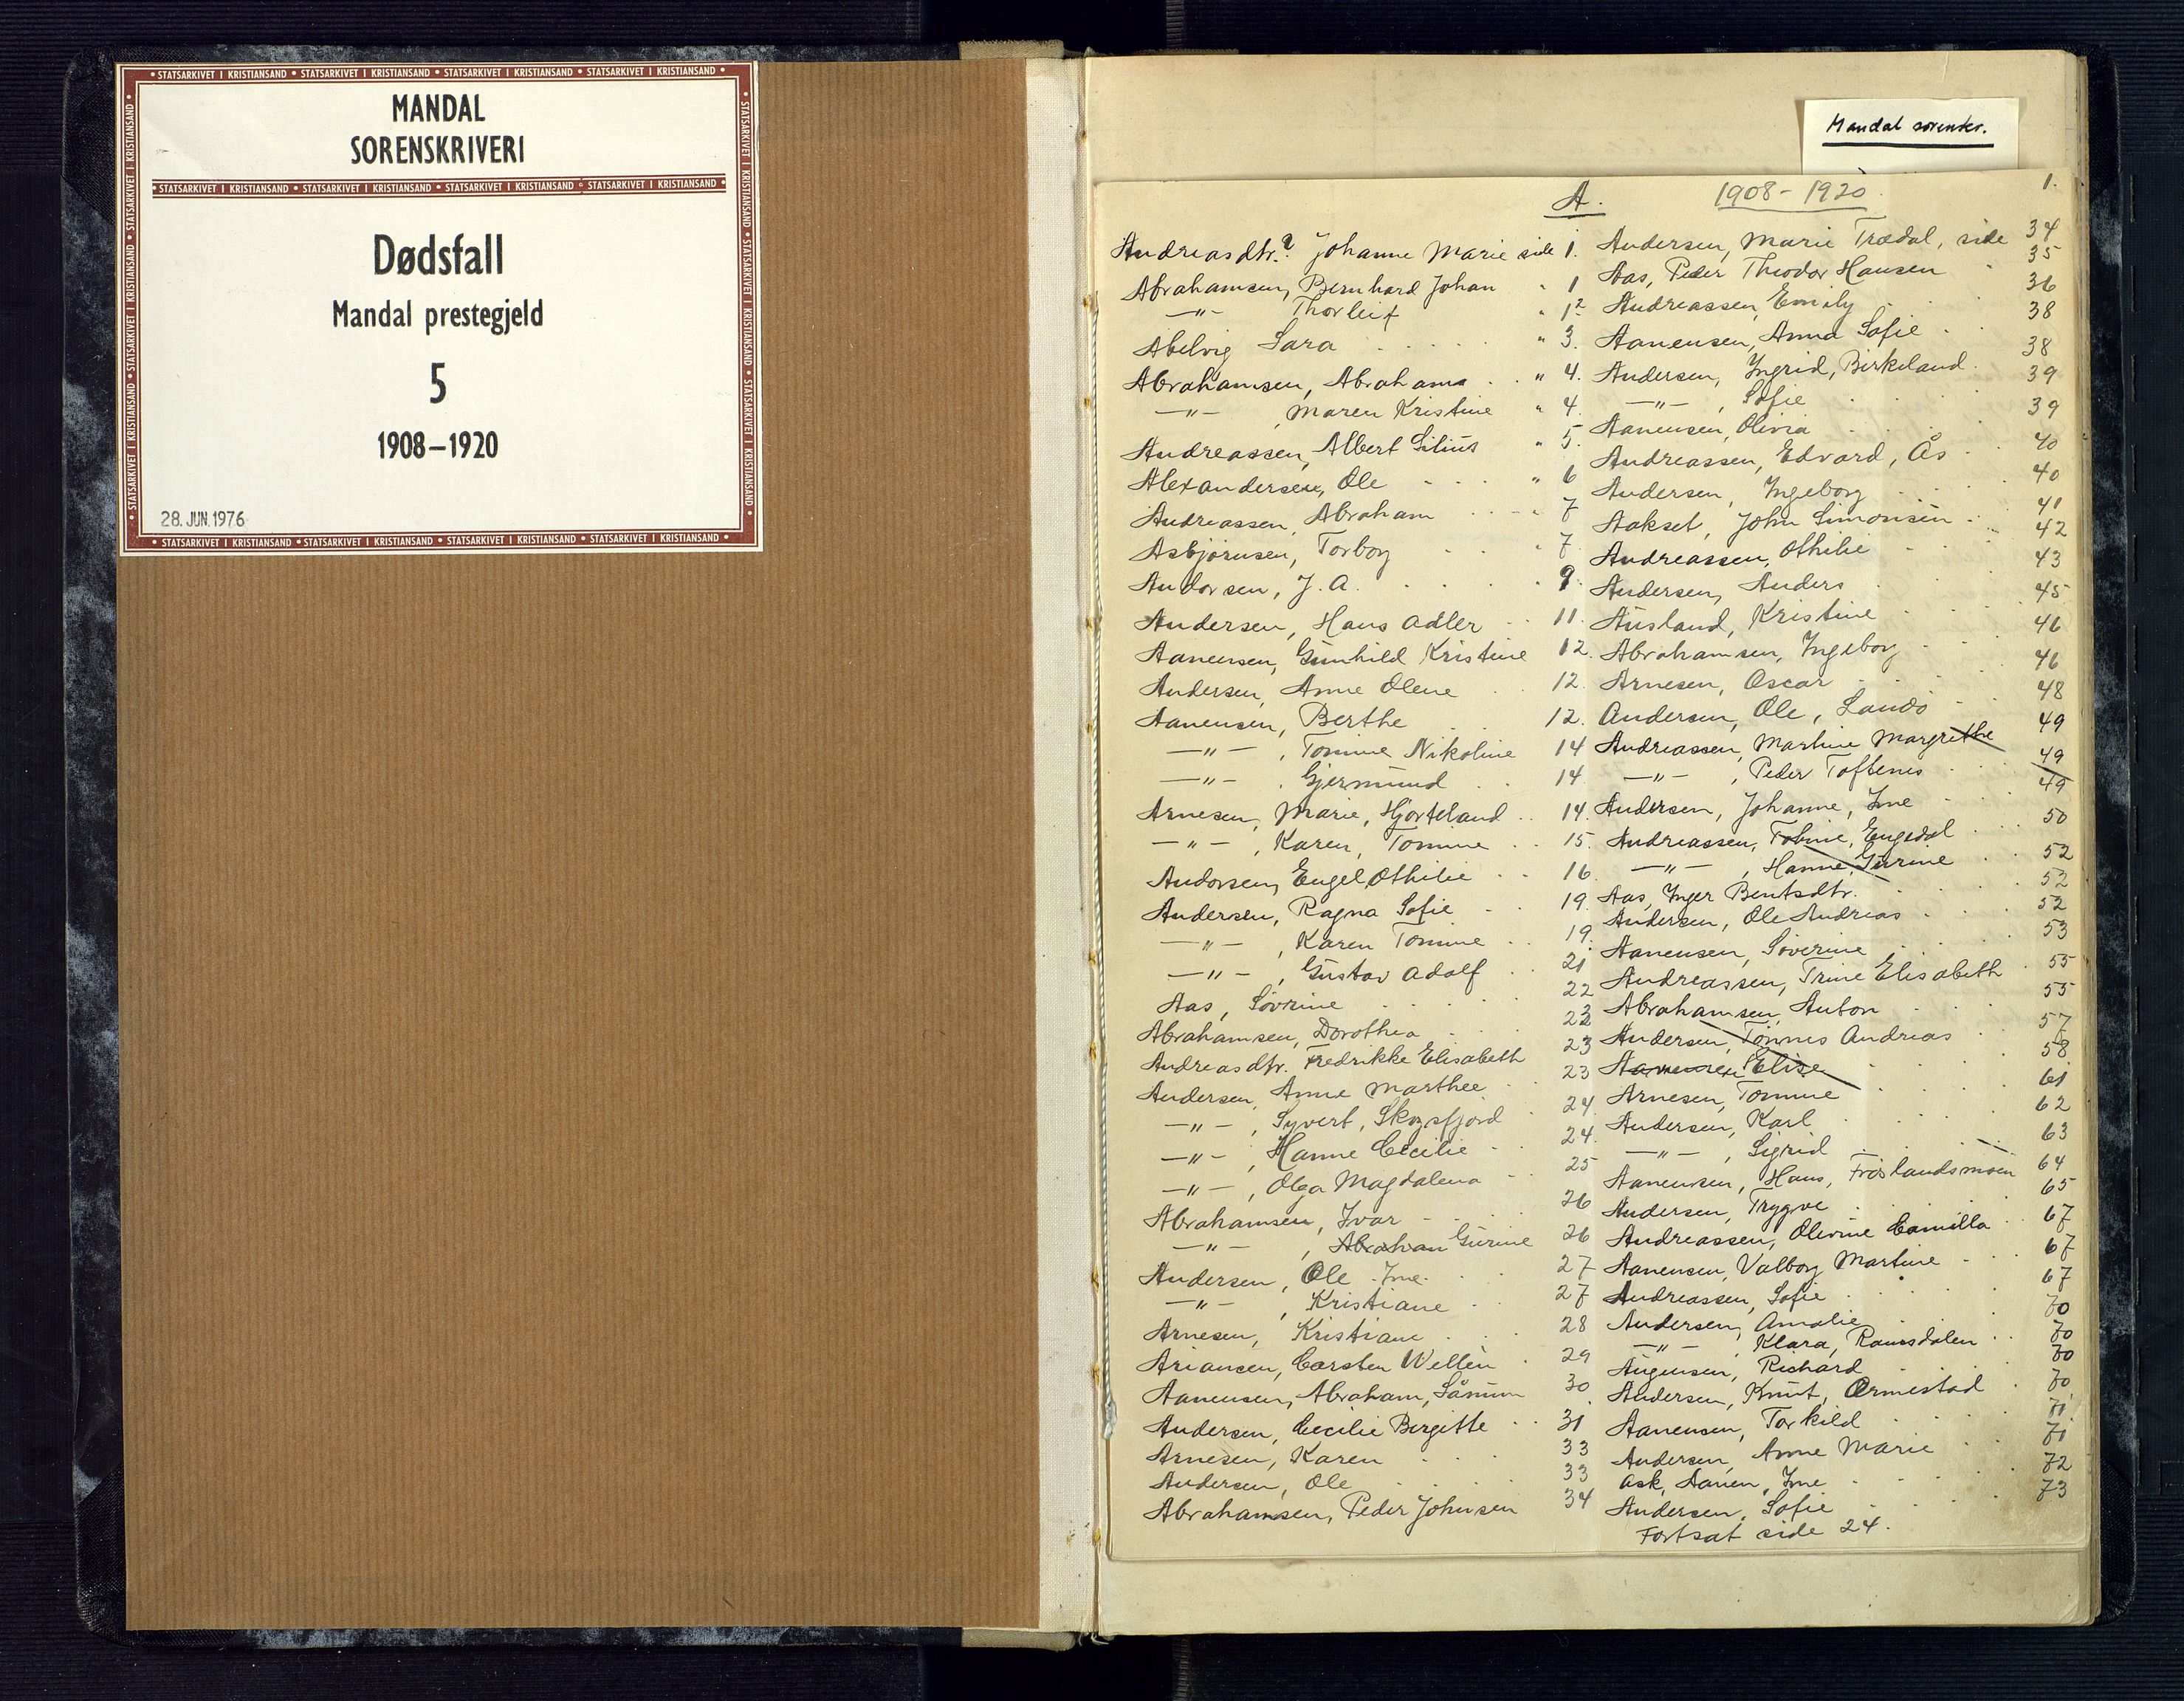 STATSARKIVET I KRISTIANSAND • STATSARKIVET I KRISTIANSAND • STATSARKIVET I KRISTIANSAND • STATSARKIVET I KRISTIANSAND
MANDAL
SORENSKRIVERI
STATSARKIVET I KRISTIANSAND • STATSARKIVET I KRISTIANSAND • STATSARKIVET I KRISTIANSAND • STATSARKIVET I KRISTIANSAND
Dødsfall
Mandal prestegjeld
5
1908–1920
28. JUN. 1976
STATSARKIVET I KRISTIANSAND • STATSARKIVET I KRISTIANSAND • STATSARKIVET I KRISTIANSAND • STATSARKIVET I KRISTIANSAND
Mandal sorenskr.
1.
A. 1908-1920.
Andreasdtr.? Johanne Marie side 1.
Abrahamsen, Bernhard Johan " 1
—"— Thorleif " 1²
Abelvig Sara " 3.
Abrahamsen, Abrahama " 4.
—"— , Maren Kristine " 4.
Andreassen, Albert Silius " 5.
Alexandersen, Ole " 6
Andreassen, Abraham " 7
Asbjørnsen, Torborg " 7.
Andorsen, J. A. " 9.
Andersen, Hans Adler 11.
Aanensen, Gunhild Kristine 12.
Andersen, Anne Olene 12.
Aanensen, Berthe 12.
—"— , Tomine Nikoline 14
—"— , Gjermund 14.
Arnesen, Marie, Hjorteland 14.
—"— , Karen, Tomine 15.
Andorsen, Engel Othilie 16
Andersen, Ragna Sofie 19.
—"— , Karen Tomine 19.
—"— , Gustav Adolf 21
Aas, Sövrine 22
Abrahamsen, Dorothea 22
Andreasdtr. Fredrikke Elisabeth 23
Andersen, Anne Marthee 23
—"— , Syvert, Skogsfjord 24
—"— , Hanne Cecilie 24.
—"— , Olga Magdalena 25
Abrahamsen, Ivar 26
—"— , Abraham Gurine 26
Andersen, Ole Ime 27
—"— , Kristiane 27
Arnesen, Kristiane 28
Ariansen, Carsten Wellèn 29
Aanensen, Abraham, Sånum 30
Andersen, Cecilie Bergitte 31
Arnesen, Karen 33
Andersen, Ole 33
Abrahamsen, Peder Johnsen 34
Andersen, Marie Trædal, side 34
Aas, Peder Theodor Hansen 35
Andreassen, Emily 36
Aanensen, Anna Sofie 38
Andersen, Ingrid, Birkeland 38
—"— , Sofie 39
Aanensen, Olivia 39
Andreassen, Edvard, Ås 40
Andersen, Ingeborg 40
Aakset, John Simonsen 41
Andreassen, Othilie 42
Andersen, Anders 43
Ausland, Kristine 45
Abrahamsen, Ingeborg 46
Arnesen, Oscar 46
Andersen, Ole, Landö 48
Andreassen, Martine Margrethe 49
—"— , Peder Toftenes 49
Andersen, Johanne, Ime 49
Andreassen, Tobine, Engedal 50
—"— , Hanne Gurine 52
Aas, Inger Bentsdtr. 52
Andersen, Ole Andreas 52
Aanensen, Söverine 53
Andreassen, Trine Elisabeth 55
Abrahamsen, Anton 55
Andersen, Tönnes Andreas 57
Aanensen Elise 58
Arnesen, Tomine 61
Andersen, Karl 62
—"— , Sigrid 63
Aanensen, Hans, Fröslandsmoen 64
Andersen, Trygve 65
Andreassen, Olevine Camilla 67
Aanensen, Valborg Martine 67
Andreassen, Sofie 67
Andersen, Amalie 70
—"— , Klara, Ramsdalen 70
Augensen, Richard 70
Andersen, Knut, Ormestad 70
Aanensen, Torkild 71.
Andersen, Anne Marie 71
Ask, Aanen, Ime 72
Andersen, Sofie 73
Fortsat side 24.